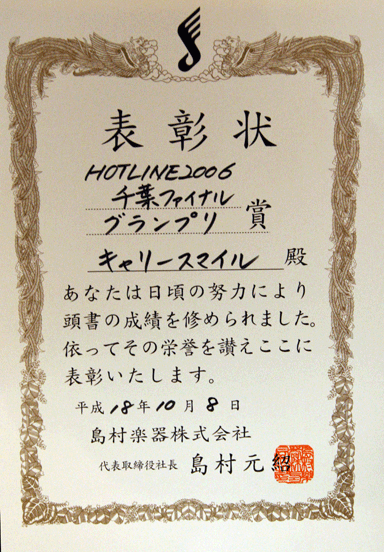 表彰状
HOTLINE2006
千葉ファイナル
グランプリ 賞
キャリースマイル 殿
あなたは日頃の努力により
頭書の成績を修められました。
依ってその栄誉を讃えここに
表彰いたします。
平成 18 年 10 月 8 日
島村楽器株式会社
代表取締役社長 島村元紹